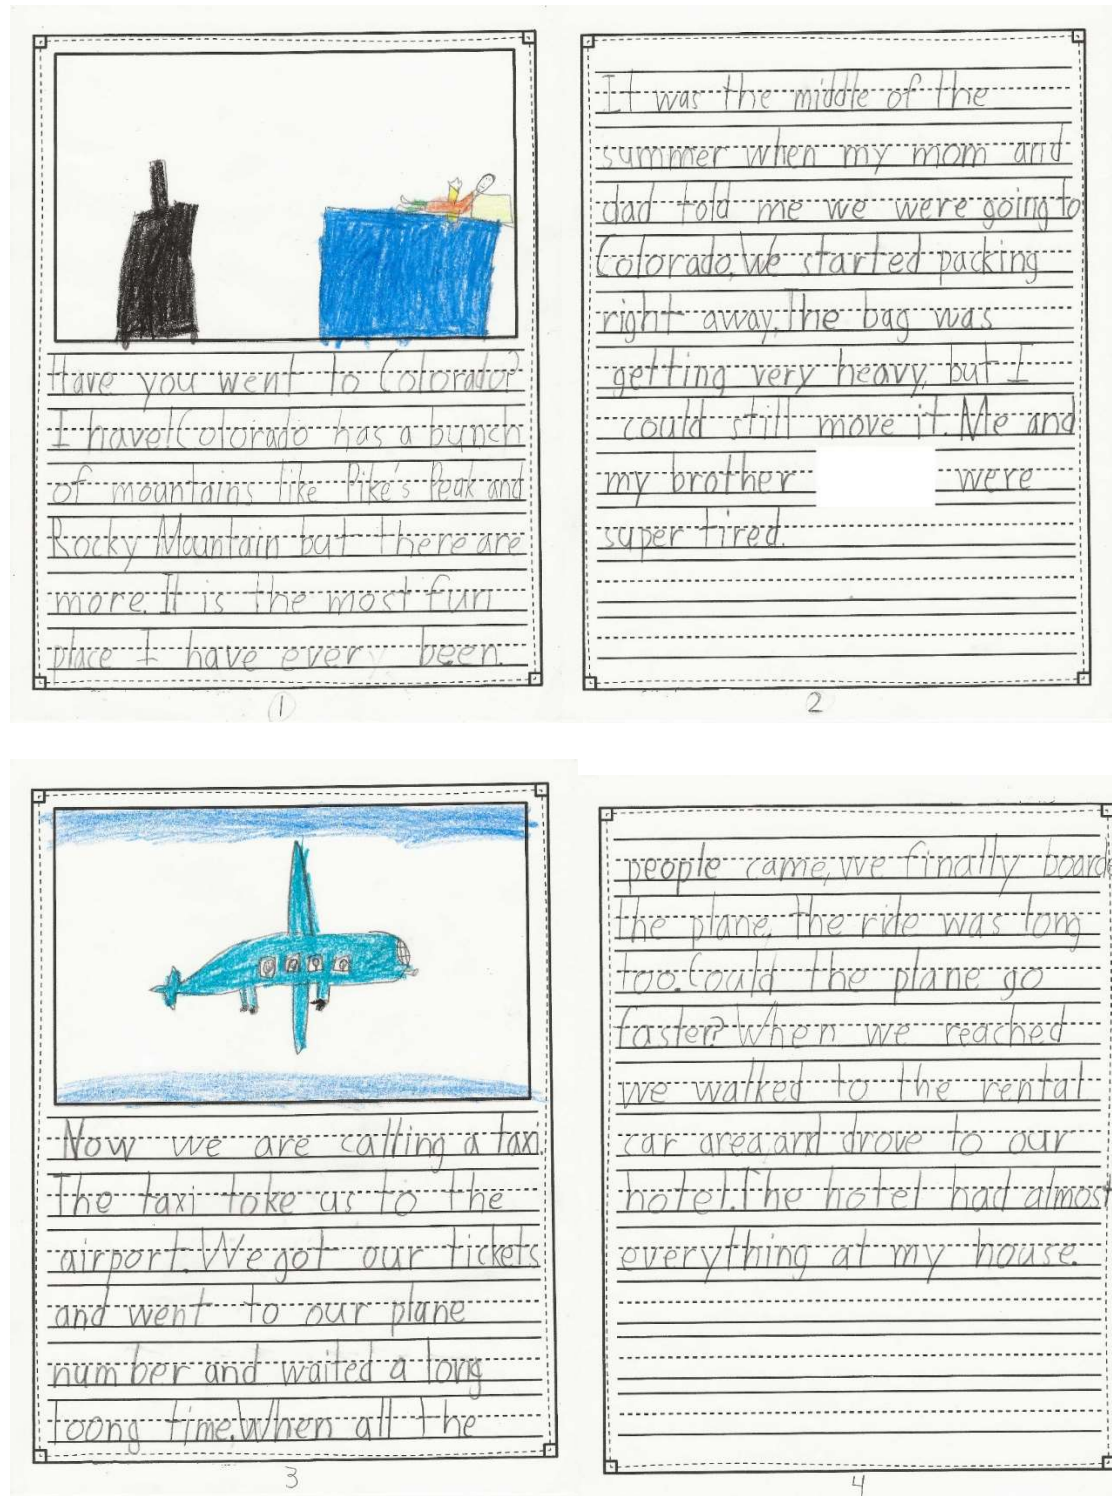 Have you went to Colorado?
I have! Colorado has a bunch
of mountains like Pike's Peak and
Rocky Mountain but there are
more. It is the most fun
place I have ever been.
1
It was the middle of the
summer when my mom and
dad told me we were going to
Colorado. We started packing
right away. The bag was
getting very heavy, but I
could still move it. Me and
my brother were
super tired.
2
Now we are calling a taxi.
The taxi toke us to the
airport. We got our tickets
and went to our plane
number and waited a long
loong time. When all the
3
people came, we finally boarde
the plane. The ride was long
too. Could the plane go
faster? When we reached
we walked to the rental
car area and drove to our
hotel. The hotel had almost
everything at my house.
4